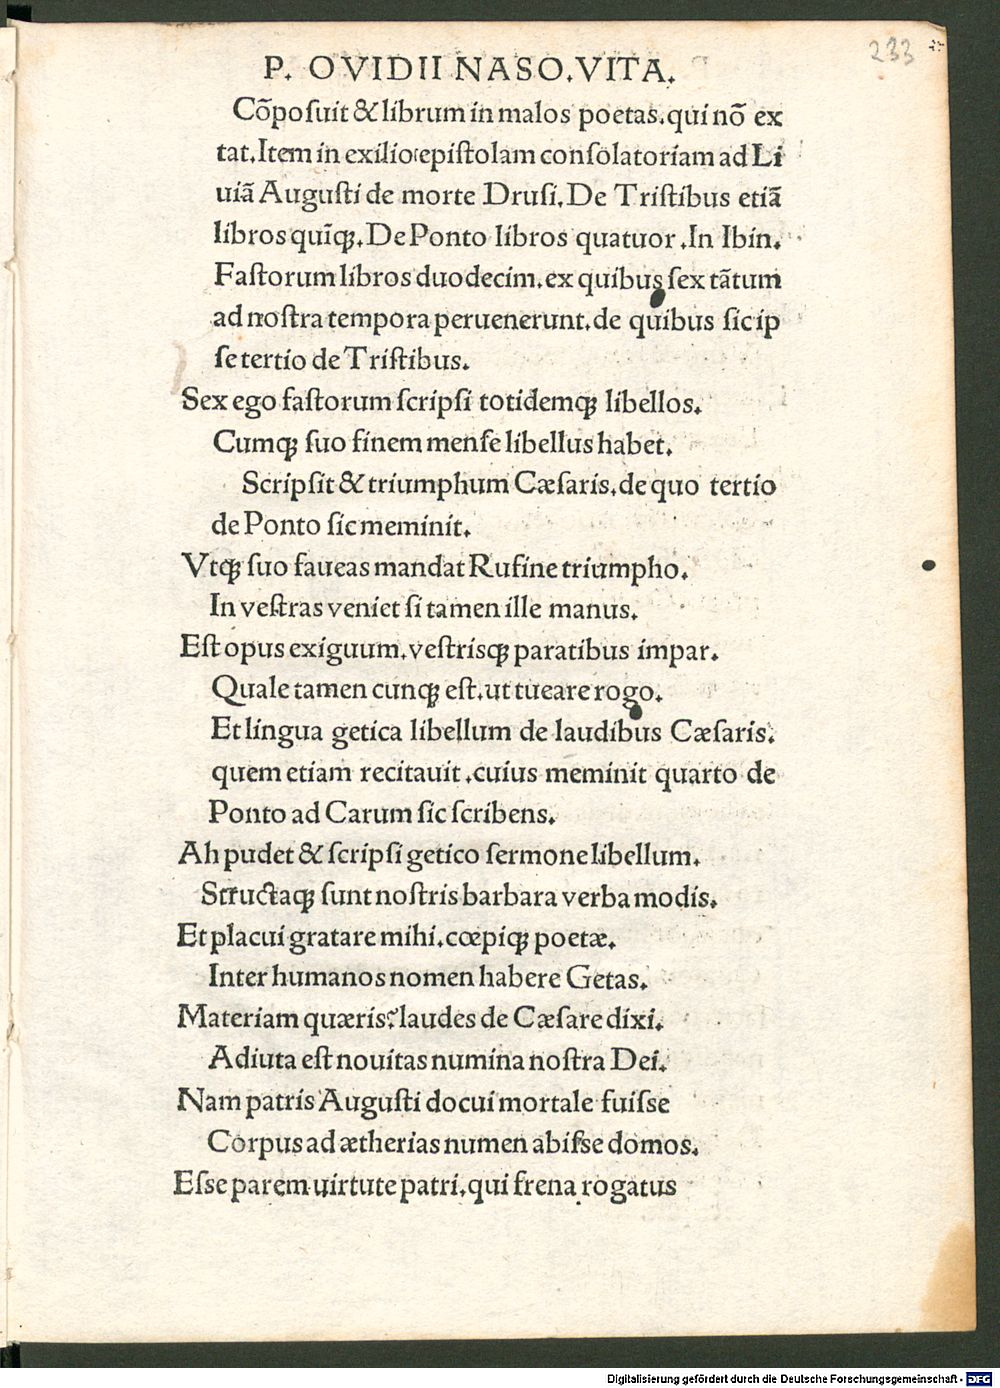 233
P. OVIDII NASO. VITA.
Cõposuit & librum in malos poetas. qui nõ ex
tat. Item in exilio epistolam consolatoriam ad Li
uiã Augusti de morte Drusi. De Tristibus etiã
libros quĩqꝫ. De Ponto libros quatuor. In Ibin.
Fastorum libros duodecim. ex quibus sex tãtum
ad nostra tempora peruenerunt. de quibus sic ip
se tertio de Tristibus.
Sex ego fastorum scripsi totidemqꝫ libellos.
Cumqꝫ suo finem mense libellus habet.
Scripsit & triumphum Cæsaris. de quo tertio
de Ponto sic meminit.
Vtqꝫ suo faueas mandat Rufine triumpho.
In vestras veniet si tamen ille manus.
Est opus exiguum. vestrisqꝫ paratibus impar.
Quale tamen cunqꝫ est. ut tueare rogo.
Et lingua getica libellum de laudibus Cæsaris.
quem etiam recitauit. cuius meminit quarto de
Ponto ad Carum sic scribens.
Ah pudet & scripsi getico sermone libellum.
Structaqꝫ sunt nostris barbara verba modis.
Et placui gratare mihi. cœpiqꝫ poetæ.
Inter humanos nomen habere Getas.
Materiam quæris? laudes de Cæsare dixi.
Adiuta est nouitas numina nostra Dei.
Nam patris Augusti docui mortale fuisse
Corpus ad ætherias numen abisse domos.
Esse parem uirtute patri. qui frena rogatus
Digitalisierung gefördert durch die Deutsche Forschungsgemeinschaft - DFG